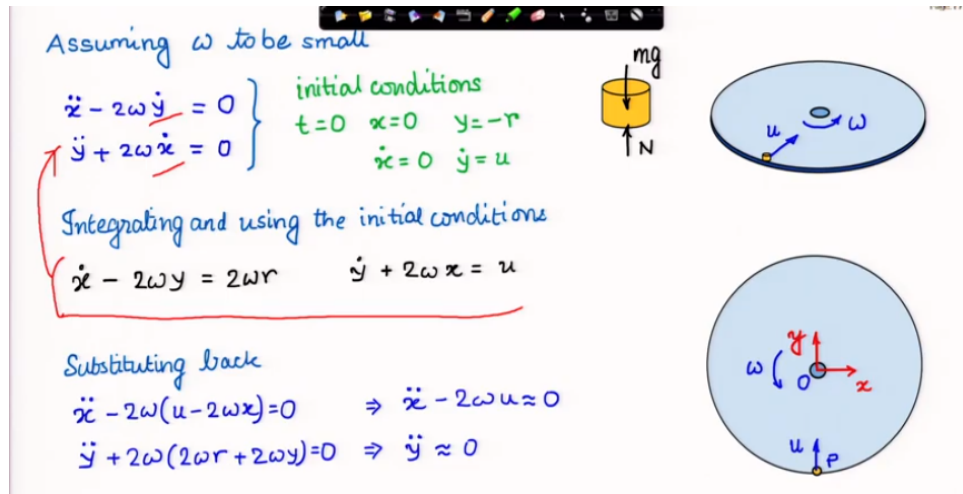 Assuming ω to be small
ẍ - 2ωẏ = 0
ÿ + 2ωẋ = 0
initial conditions
t=0 x=0 y=-r
ẋ=0 ẏ=u
mg
N
u
ω
Integrating and using the initial conditions
ẋ - 2ωy = 2ωr ẏ + 2ωx = u
Substituting back
ẍ - 2ω(u-2ωx)=0 ⇒ ẍ - 2ωu≈0
ÿ + 2ω(2ωr+2ωy)=0 ⇒ ÿ ≈ 0
y
ω
O
x
u
P